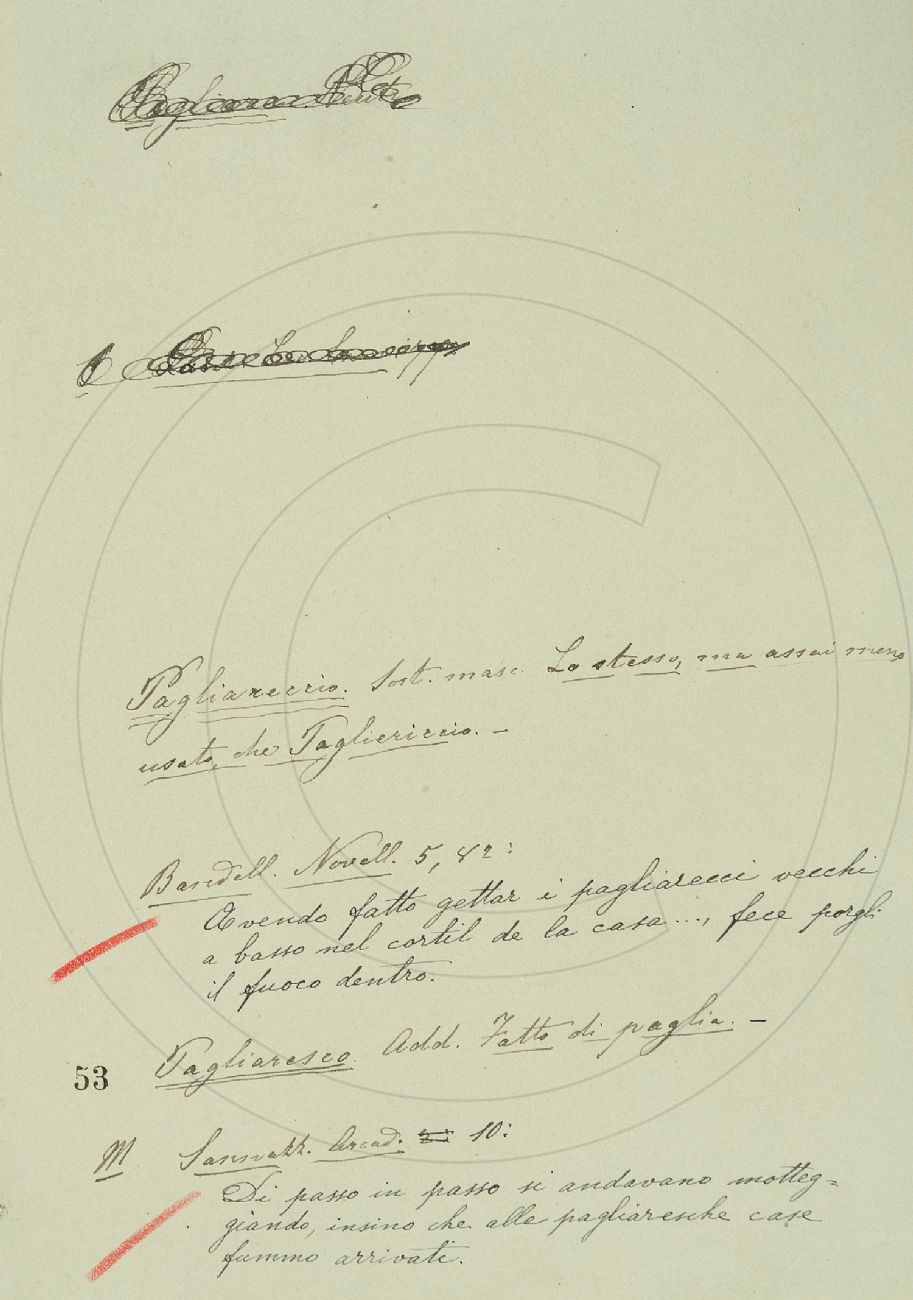 Pagliareccio. Sost. masc. Lo stesso, ma assai meno
usato, che Pagliericcio. –
Bandell. Novell. 5, 42:
Avendo fatto gettar i pagliarecci vecchi
a basso nel cortil de la casa..., fece porgli
il fuoco dentro.
Pagliaresco. Add. Fatto di paglia. –
53
M Sannazz. Arcad. 10:
Di passo in passo si andavano motteg=
giando, insino che alle pagliaresche case
fummo arrivati.